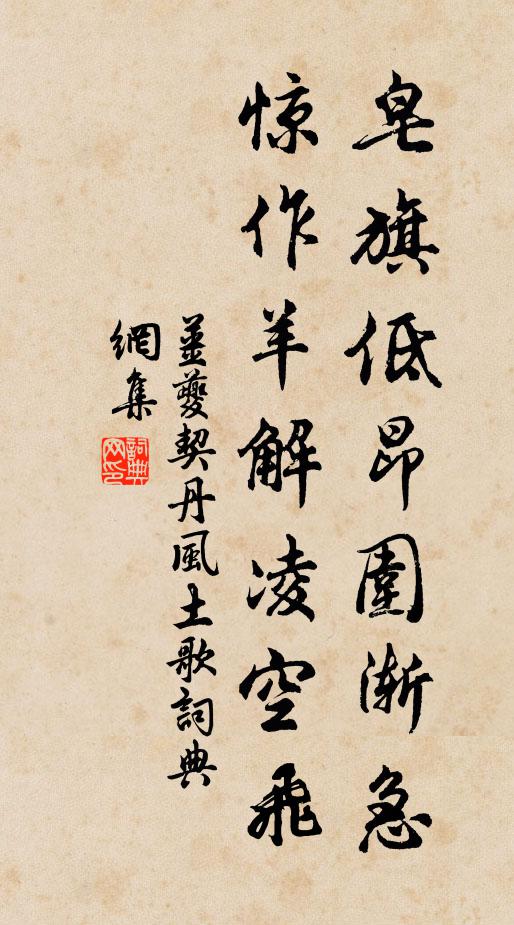 皂旗低昂圍漸急
惊作羊解凌空飛
姜夔契丹風土歌詞典
網集
詞典网印